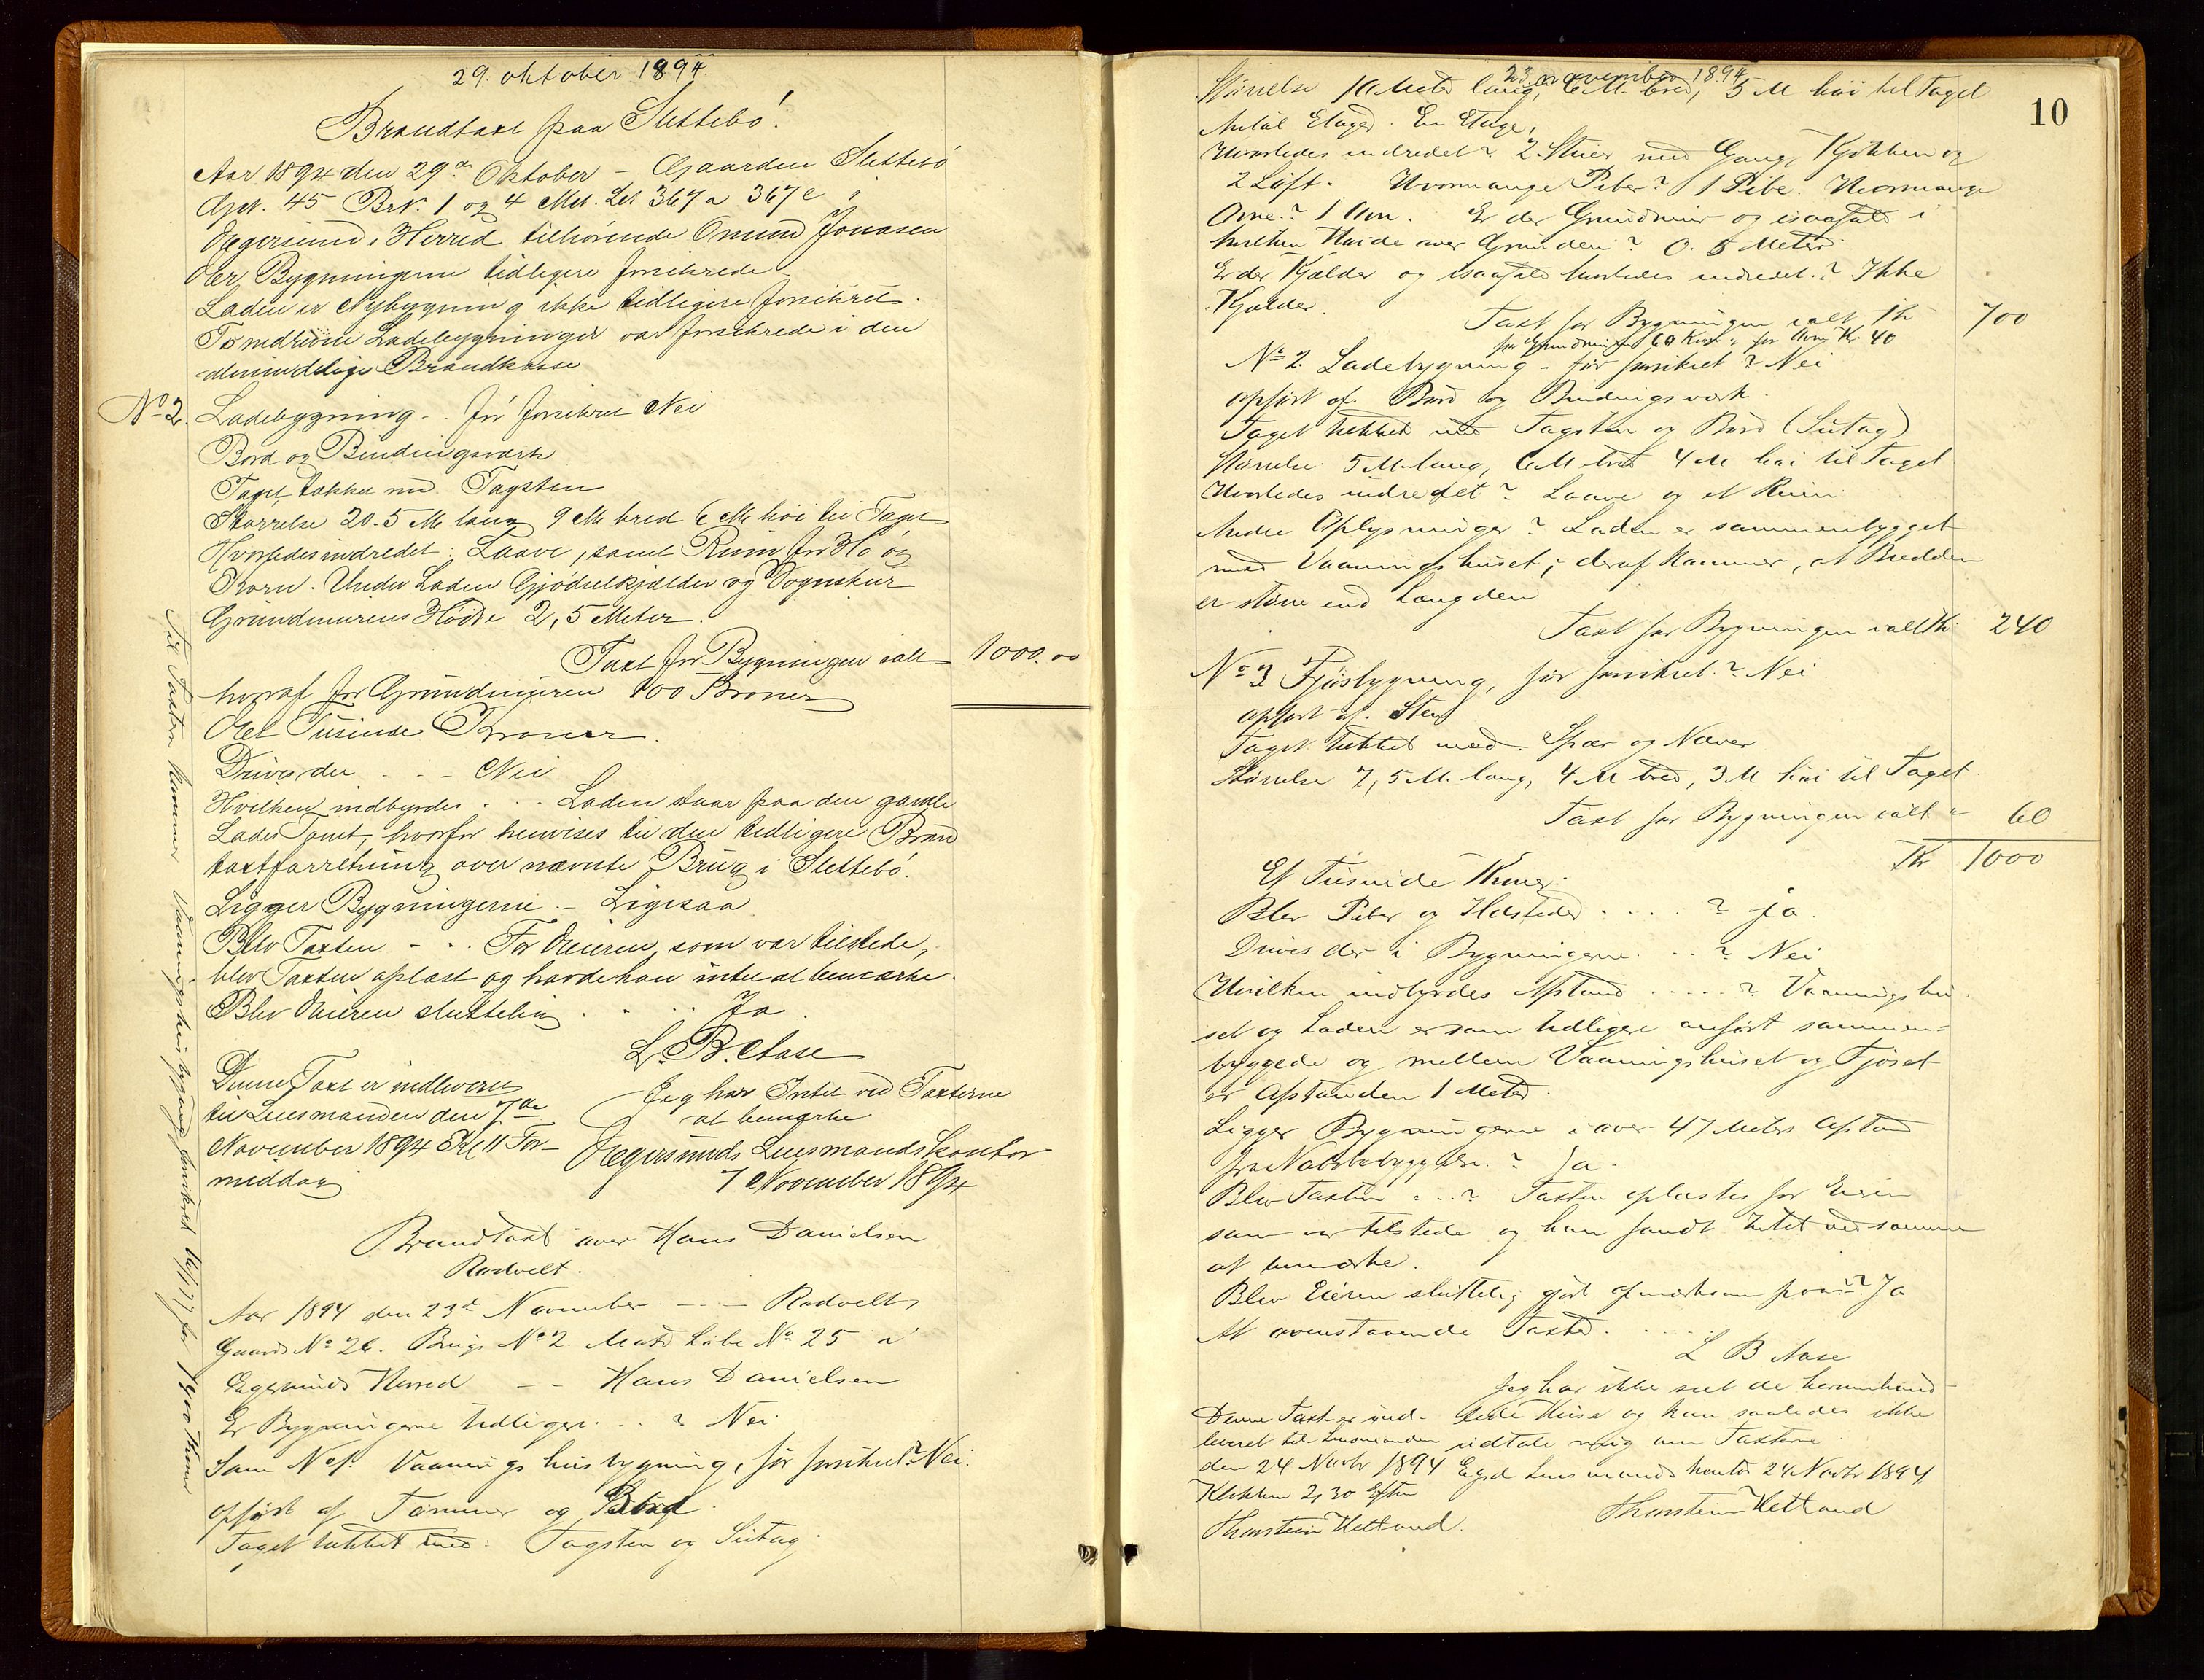 29. oktober 1894.
Brandtaxt paa Slettebö.
Aar 1894 den 29de Oktober – Gaarden Slettebö
Gr. 45 Br. 1 og 4 Mtr. Lb 367 a 367 c i
Egersunds Herred tilhørende Omund Jonasen
Er Bygningerne tidligere forsikrede
Laden er Nybygning ikke tidligere forsikret.
To nedrevne Ladebygninger var forsikrede i den
almindelige Brandkasse
No 2. Ladebygning - . för forsikret Nei
Bord og Bindingsværk
Taget tækket med. Tagsten
Størrelse 20.5 M lang 9 M bred 6 M høi til Taget
Hvorledes indredet: Laave, samt Rum for Hö og
Korn. Under Laden Gjödselkjælder og Vognskur
Grundmurens Høide 2,5 Meter.
Taxt for Bygningen ialt 1000.00
hvoraf for Grundmuren 100 Kroner
Et Tusinde Kroner.
Drives der . - - Nei
Hvilken indbyrdes . . . Laden staar paa den gamle
Lades Tomt, hvorfor henvises til den tidligere Brand
taxtforretning over nævnte Brug i Slettebö.
Ligger Bygningerne - Ligesaa
Blev Taxten - . . For Eieren, som var tilstede,
blev Taxten oplæst og havde han intet at bemærke.
Blev Eieren sluttelig . . . . Ja.
L. B. Aase
Denne Taxt er indleveret
til Lensmanden den 7de
November 1894 Kl 11 For-
middag
Jeg har Intet ved Taxterne
at bemærke
Egersunds Lensmandskontor
7 November 1894
Til Taxten kommer Vaaningshusbygning forsikret for 1900 Kroner
Brandtaxt over Hans Danielsen
Rodvelt.
Aar 1894 den 23de November - - - Rodvelt
Gaards No 26. Brugs No 2. Matr Löbe No 25 i
Egersunds Herred - - Hans Danielsen
Er Bygningerne tidligere . . . ? Nei.
Som No 1. Vaaningshusbygning, för forsikret? Nei.
opført af Tømmer og Bord.
Taget tækket med: Tagsten og Sutag.
23. november 1894
10
Størrelse 10 Meter lang, 6 M. bred, 5 M høi til Taget
Antal Etager. En Etage,
Hvorledes indredet? 2 Stuer med Gang, Kjökken og
2 Löft. Hvormange Piber? 1 Pibe. Hvormange
Ovne? 1 Ovn. Er der Grundmur og isaafald i
hvilken Høide over Grunden? 0.5 Meter.
Er der Kjælder og isaafald hvorledes indredet? Ikke
Kjælder.
Taxt for Bygningen ialt Kr 700
for Grundmuren 60 Kroner for Ovn Kr. 40
No 2. Ladebygning - för forsikret? Nei
opført af. Bord og Bindingsværk.
Taget tækket med Tagsten og Bord (Sutag)
Størrelse 5 M lang, 6 M bred 4 M høi til Taget
Hvorledes indredet? Laave og et Rum.
Andre Oplysninger? Laden er sammenbygget
med Vaaningshuset; deraf kommer, at Bredden
er större end Længden
Taxt for Bygningen ialt Kr 240
No 3 Fjösbygning, för forsikret? Nei.
opfört af. Sten
Taget tækket med. Spær og Næver
Størrelse 7,5 M. lang, 4 M bred, 3 M høi til Taget.
Taxt for Bygningen ialt " 60
Kr 1000
Et Tusinde Kroner.
Blev Piber og Ildsteder . . . . ? Ja.
Drives der i Bygningerne . . . ? Nei
Hvilken indbyrdes Afstand . . . . . ? Vaaningshu-
set og Laden er som tidligere anført sammen-
byggede og mellem Vaaningshuset og Fjöset
er Afstanden 1 Meter.
Ligger Bygningerne i over 47 Meters Afstand
fra Nabobebyggelse? Ja.
Blev Taxten . . . ? Taxten oplæstes for Eieren
som var tilstede og han fandt Intet ved samme
at bemærke.
Blev Eieren sluttelig gjort opmærksom paa . . ? Ja
At ovenstaaende Taxter. . . . . .
L B Aase
Denne Taxt er ind-
leveret til Lensmanden
den 24 Novbr 1894
Klokken 2,30 Efterm
Thorstein Hetland.
Jeg har ikke seet de heromhand-
lede Huse og kan saaledes ikke
udtale mig om Taxterne.
Egsd Lensmandskontor 24 Novbr 1894
Thorstein Hetland